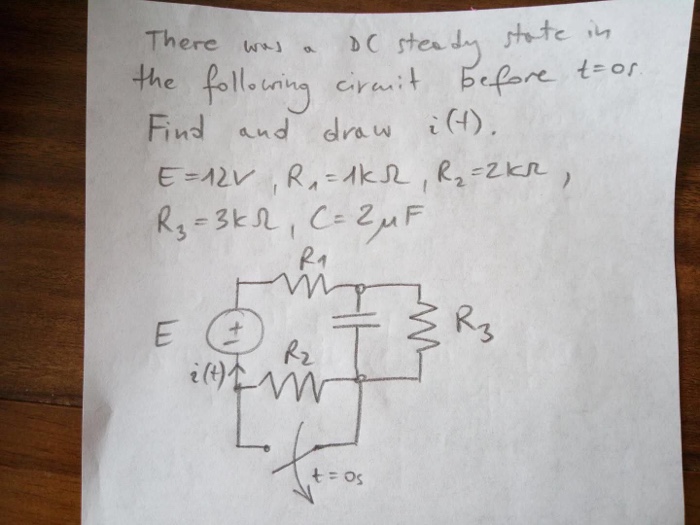 There was a DC steady state in
the following circuit before t=0s.
Find and draw i(t).
E=12V, R₁=1kΩ, R₂=2kΩ,
R₃=3kΩ, C=2μF
R1
E
+
−
R3
R2
i(t)
t=0s